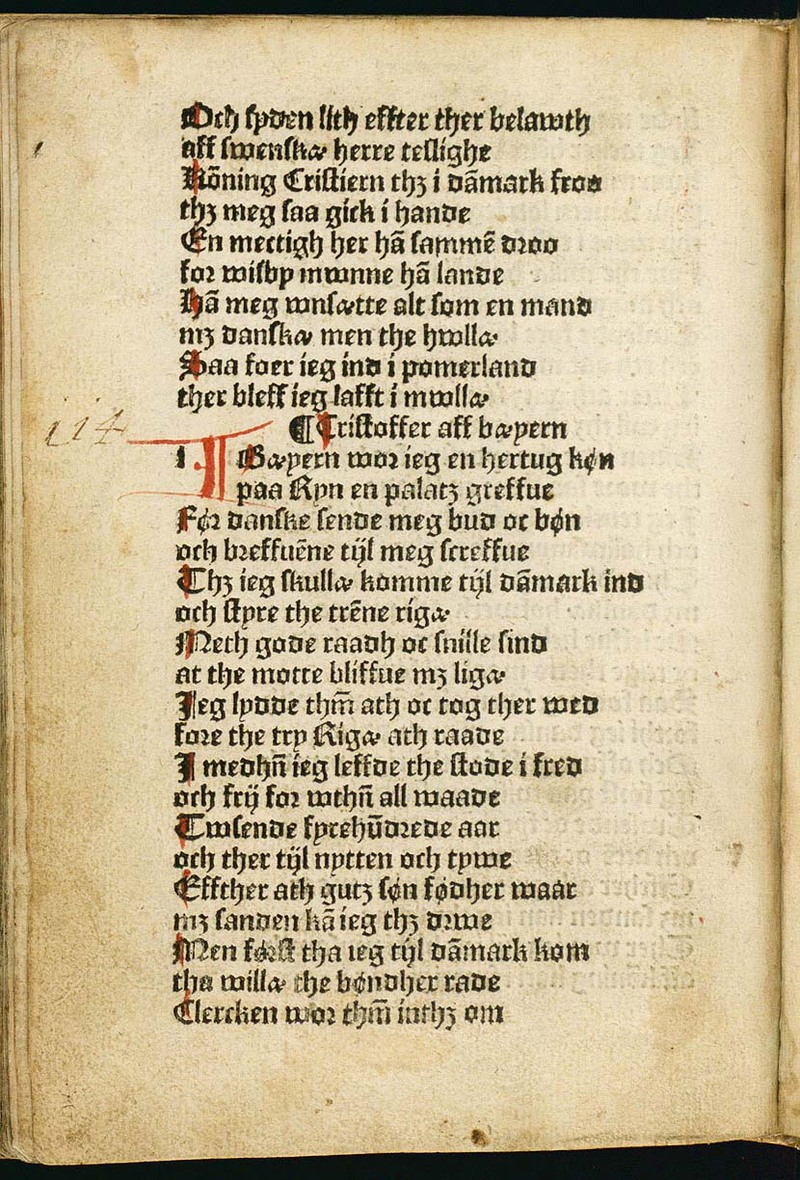 Och syden lith effter ther belawth
aff swenskæ herre tellighe
Kōning Cristiern thʒ i dāmark froo
thʒ meg saa gick i hande
En mectigh her hā sammē droo
for wisby mwnne hā lande
Hā meg wnsætte alt som en mand
mʒ danskæ men the hwllæ
Saa foer ieg ind i pomerland
ther bleff ieg lafft i mwllæ
¶Cristoffer aff bæyern
114
I Bæyern wor ieg en hertug køn
paa Ryn en palatʒ greffue
Før danske sende meg bud oc bøn
och breffuēne tijl meg screffue
Thʒ ieg skullæ komme tijl dāmark ind
och styre the trēne rigæ
Meth gode raadh oc snille sind
at the motte bliffue mʒ ligæ
Jeg lydde thm̄ ath oc tog ther wed
fore the try Rigæ ath raade
J medhn̄ ieg leffde the stode i fred
och frij for wthn̄ all waade
Twsende fyrehūdrede aar
och ther tijl nytten och tywe
Effther ath gutʒ søn fødher waar
mʒ sanden kā ieg thʒ drwe
Men først tha ieg tijl dāmark kom
tha willæ the bøndher rade
Clercken wor thm̄ inthʒ om